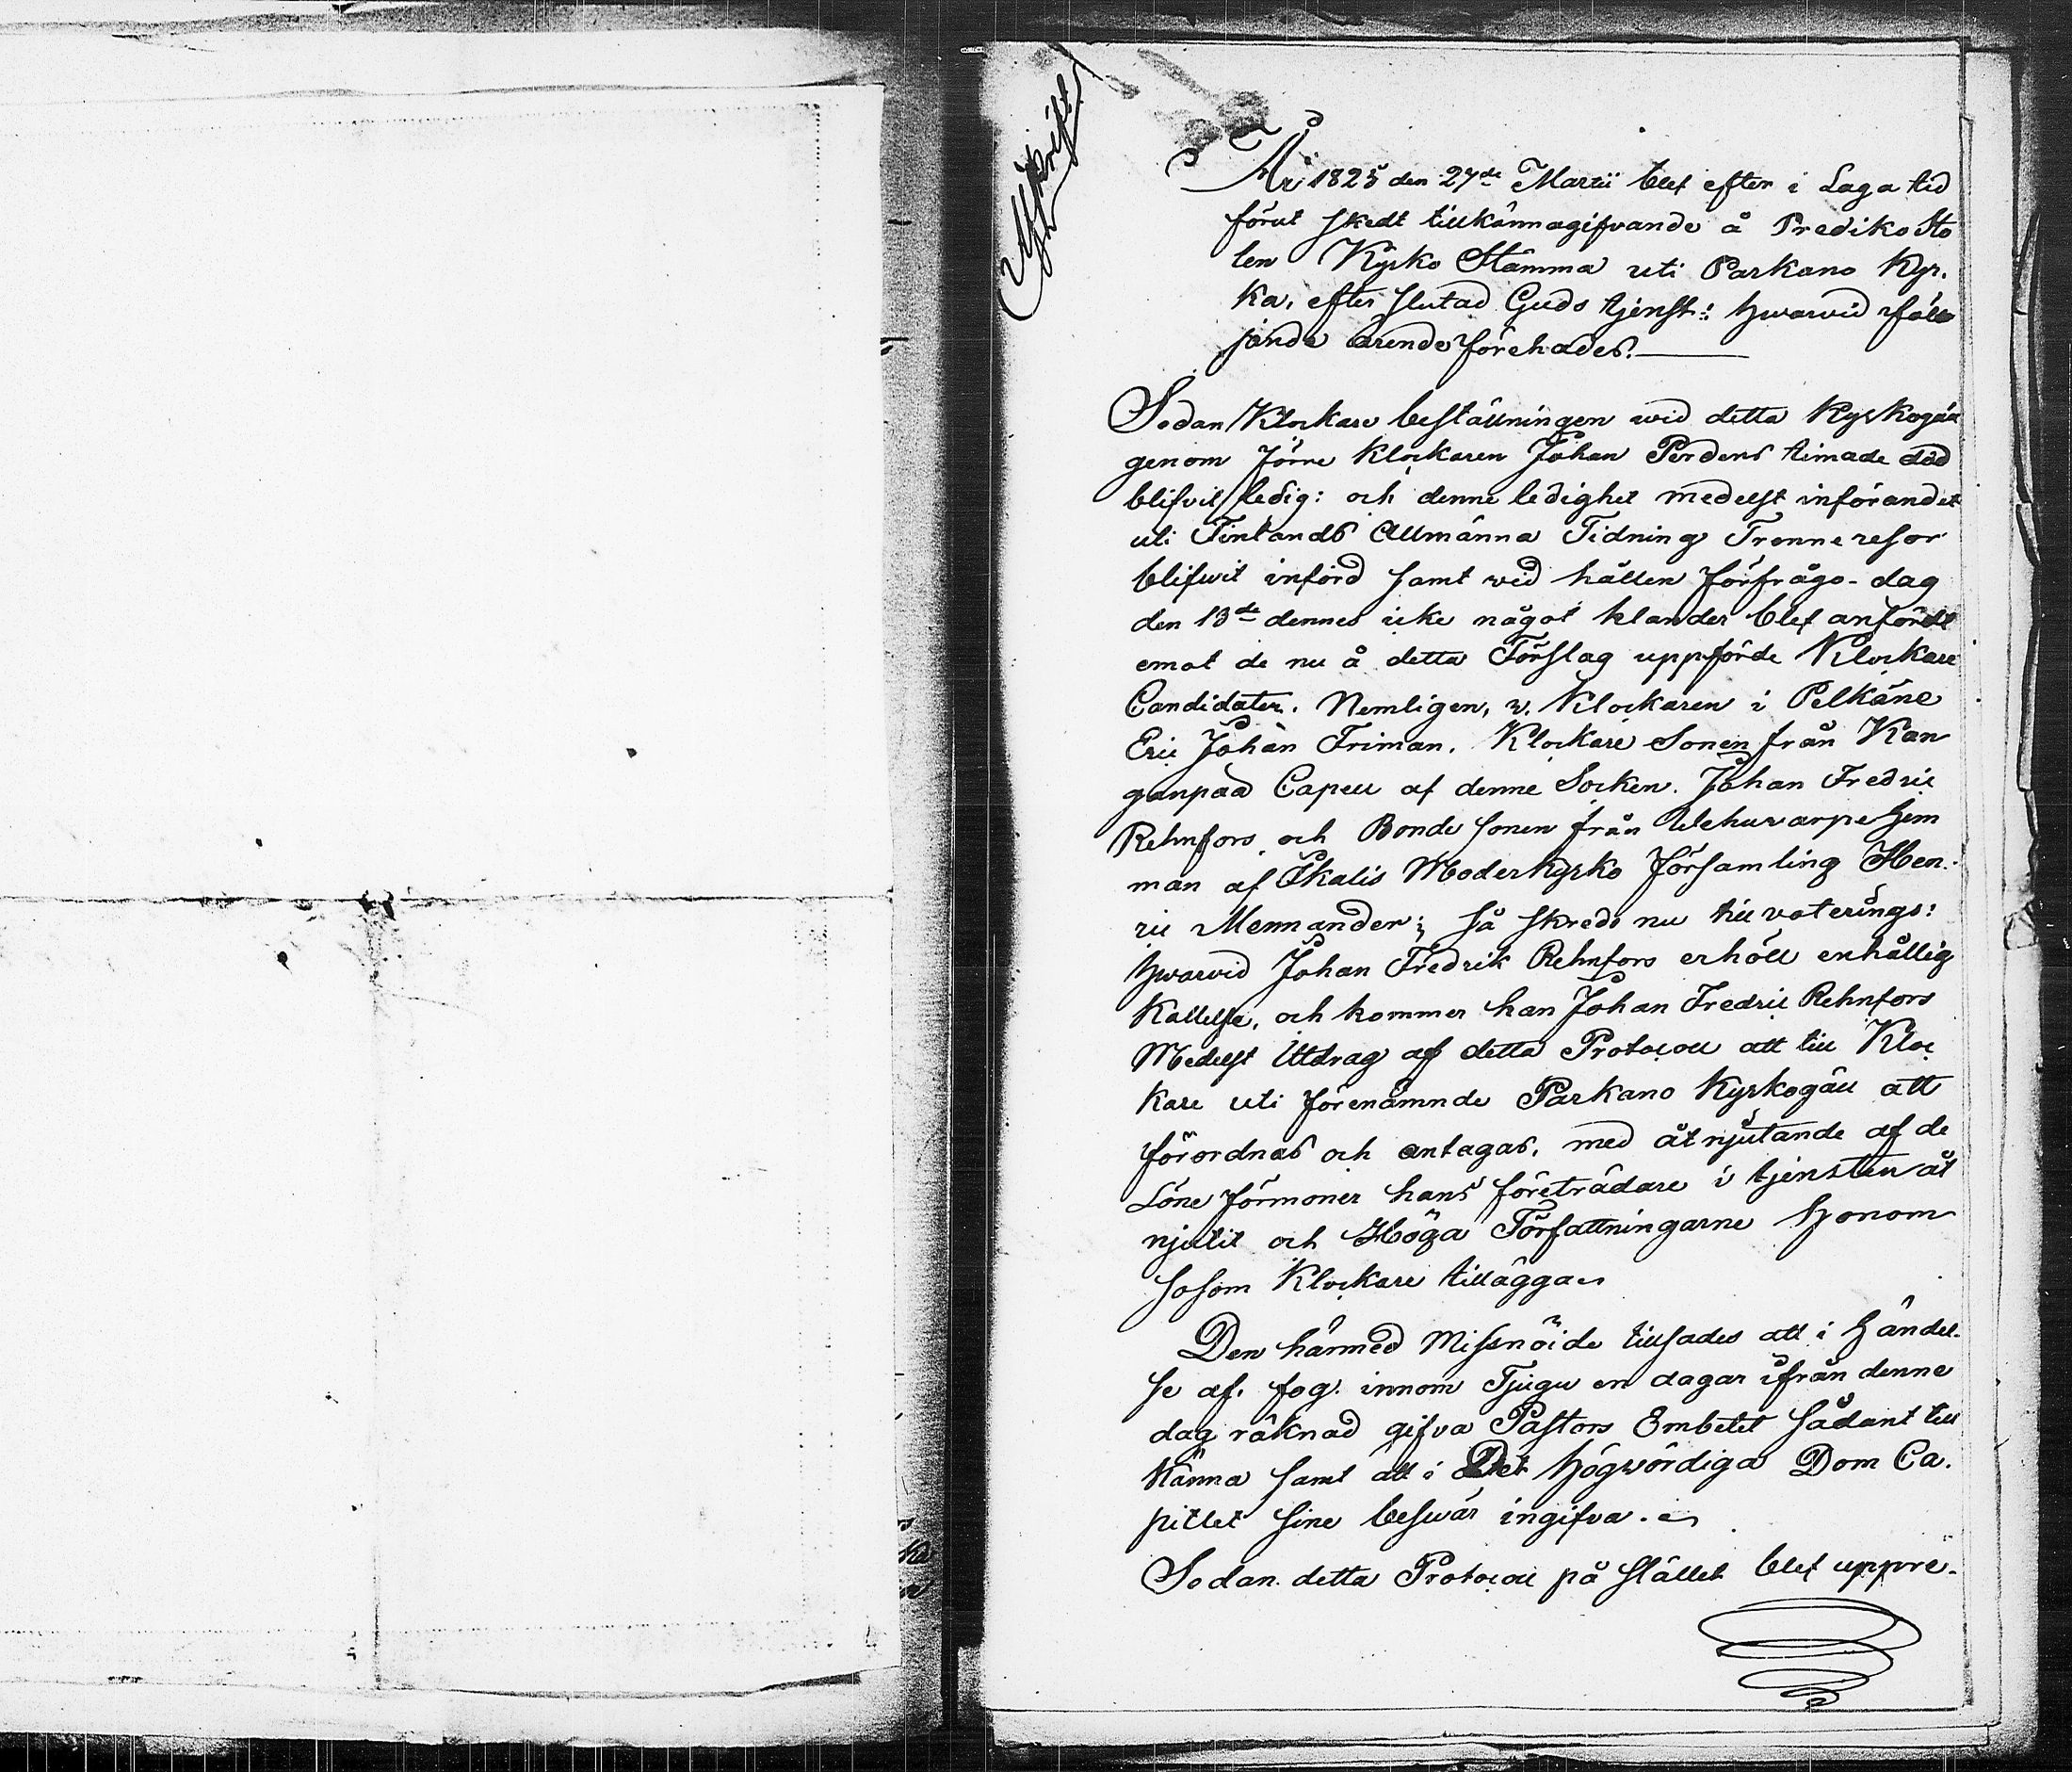 Afskrift
År 1825 den 27de Martii blef efter i Laga tid
förut skedt tillkännagifvande å Prediko Sto
len Kyrko Stämma uti Parkano Kyr.
ka, efter slutad Guds tjenst: hwarvid föll
jande ärende förehades.
Sedan Klockare beställningen wid detta Kyrkogäll
genom förre Klockaren Johan Perdens timade död
blifvit ledig: och denne ledighet medelst införandet
uti Finlands Allmänna Tidning Trenne resor
blifwit införd samt wid hållen förfrågo-dag
den 13de dennes icke något klander blef anfördt
emot de nu å detta Förslag uppförde Klockare
Candidater. Nemligen, v. Klockaren i Pelkäne
Eric Johan Friman. Klockare Sonen från Kan
ganpää Capell af denne Socken. Johan Fredric
Rehnfors och Bonde sonen från hem
man af Ikalis Moderkyrko församling Hen-
ric Mennander; så skreds nu till voterings:
hwarvid Johan Fredrik Rehnfors erhöll enhällig
Kallelse, och kommer han Johan Fredric Rehnfors
Medelst Utdrag af detta Protocoll att till Kloc
kare uti förenämnde Parkano Kyrkogäll att
förordnas och antagas, med åtnjutande af de
Löne förmoner hans företrädare i tjensten åt
njutit och Höga Författningarne honom
såsom Klockare tillägga
Den härmed Missnöide tillsades att i händel-
se af. fog. innom Tjugu en dagar ifrån denne
dag räknad gifva Pastors Embetet sådant till
känna samt att i Det högwördiga Dom Ca.
pitlet sine beswär ingifva.
Sedan detta Protocoll på stället blef uppre-